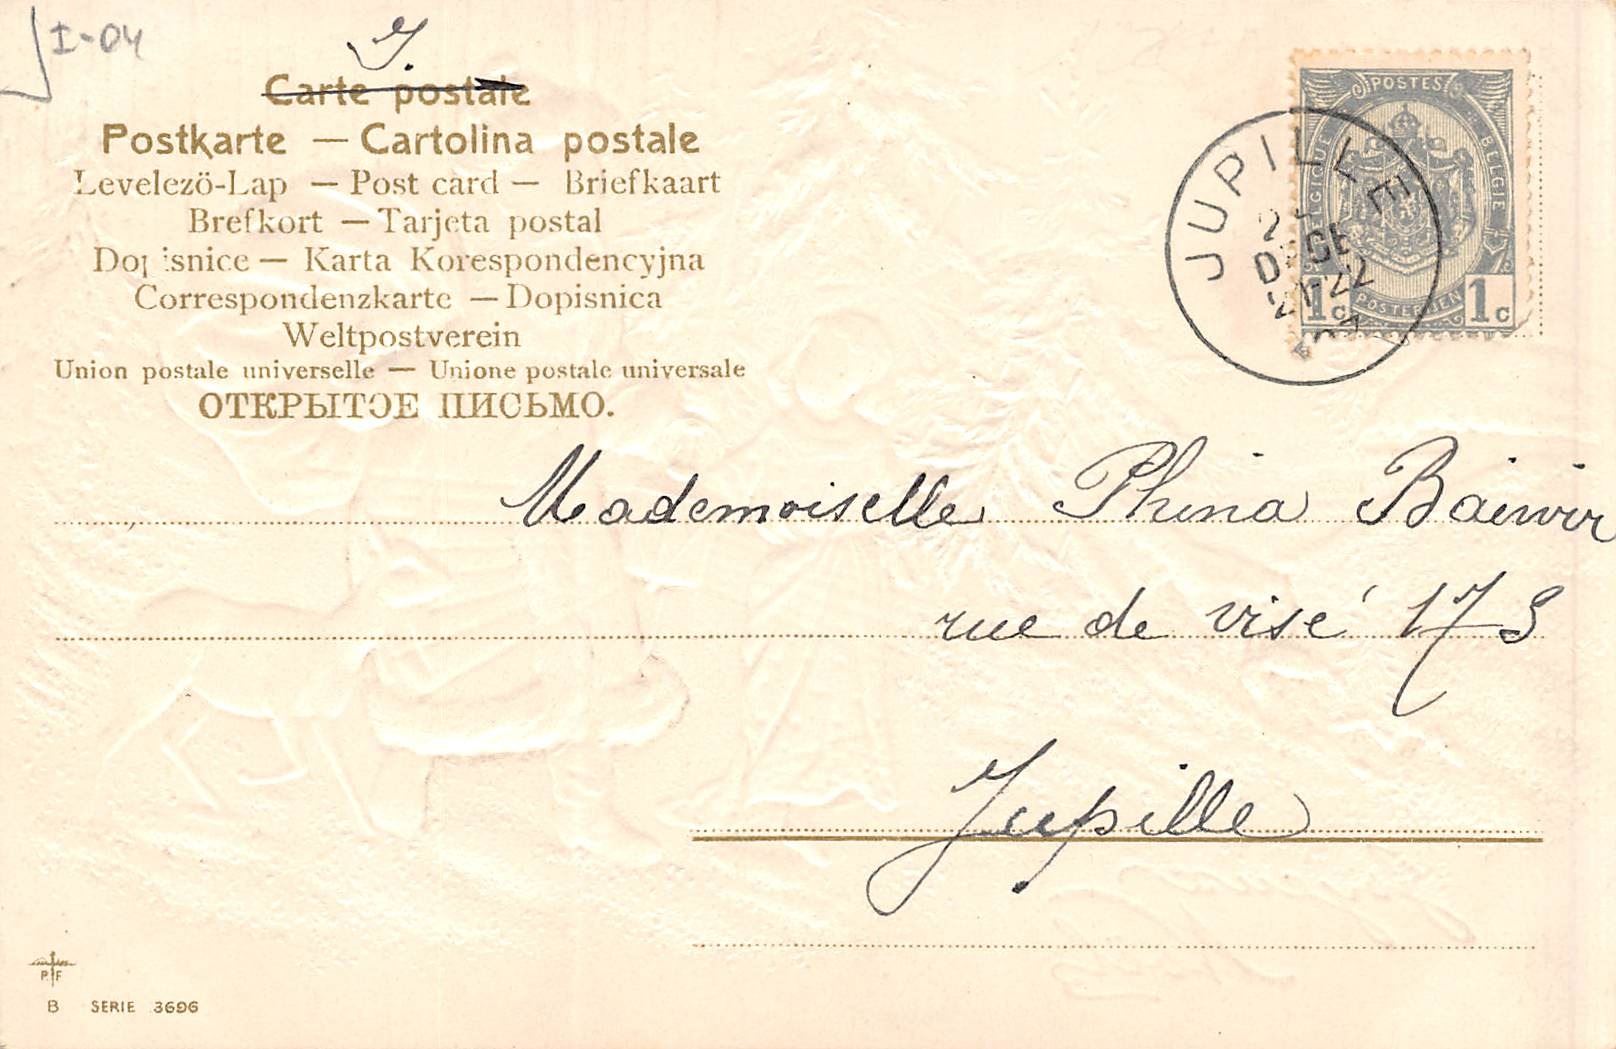 I-04
J.
Carte postale
Postkarte — Cartolina postale
Levelező-Lap — Post card — Briefkaart
Brefkort — Tarjeta postal
Dopisnice — Karta Korespondencyjna
Correspondenzkarte — Dopisnica
Weltpostverein
Union postale universelle — Unione postale universale
ОТКРЫТОЕ ПИСЬМО.
POSTES
BELGIQUE BELGIE
POSTERIJEN
1c 1c
JUPILLE
DECE
Mademoiselle Phina Bainvir
rue de visé 173
Jupille
P F
B SERIE 3696